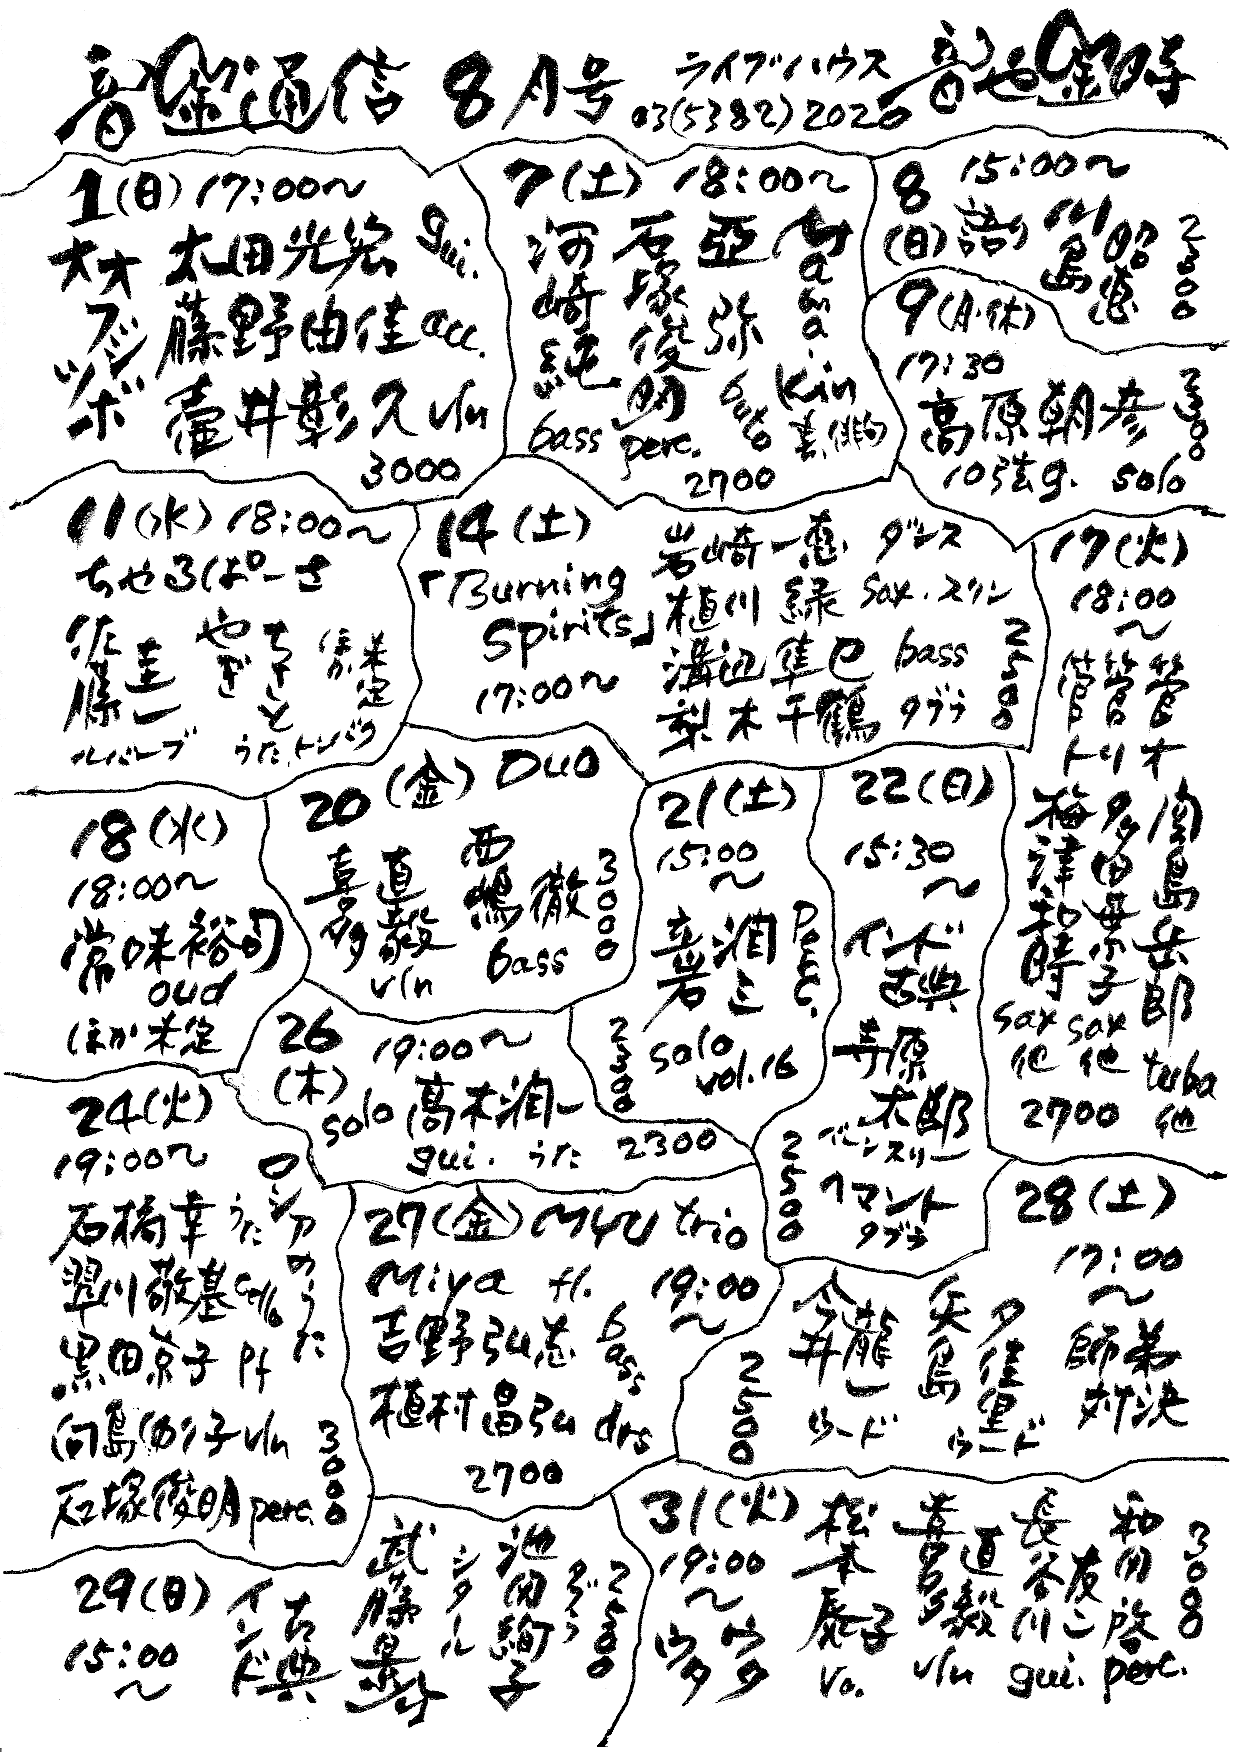 音金通信 8月号 ライブハウス 音や金時
03(5382)2020
1(日) 17:00〜
オオフジツボ
太田光宏 gui.
藤野由佳 acc.
壷井彰久 vln
3000
7(土) 18:00〜
河崎純 bass
石塚俊明 perc.
亞弥 buto
2700
8(日) 15:00〜
語り 川島昭恵
2500
9(月・休)
17:30
高原朝彦
10弦g. solo
2500
11(水) 18:00〜
ちゃるぱーさ
佐藤圭一 ルバーブ
やぎちさと うた、トンバク
ほか未定
14(土)
「Burning
Spirits」
17:00〜
岩崎一恵 ダンス
植川縁 Sax.スリン
溝辺隼巳 bass
梨木千鶴 タブラ
2500
17(火)
18:00
〜
菅菅菅
トリオ
梅津和時 sax他
多田葉子 sax他
関島岳郎 tuba他
2700
18(水)
18:00〜
常味裕司
oud
ほか未定
20(金) Duo
喜多直毅 vln
西嶋徹 bass
3000
21(土)
15:00
〜
立岩潤三 perc.
solo
vol.16
2300
22(日)
15:30
〜
インド
古典
寺原
太郎
バーンスリー
ヘマント
タブラ
2500
24(火)
19:00〜
ロシアのうた
石橋幸 うた
翠川敬基 cello
黒田京子 Pf
向島ゆり子 vln
石塚俊明 perc.
3000
26(木)
19:00〜
solo 高木潤一
gui. うた 2300
27(金) M4U trio
Miya fl. 19:00〜
吉野弘志 bass
植村昌弘 drs
2700
28(土)
17:00
〜
師弟対決
今井龍一 ウード
矢島夕佳里 ウード
2500
29(日)
15:00
〜
インド古典
武藤景介 シタール
池田絢子 タブラ
2500
31(火)
19:00
〜
ウタウタ
松本泰子 Vo.
喜多直毅 vln
長谷川友二 gui.
和田啓 perc.
3000